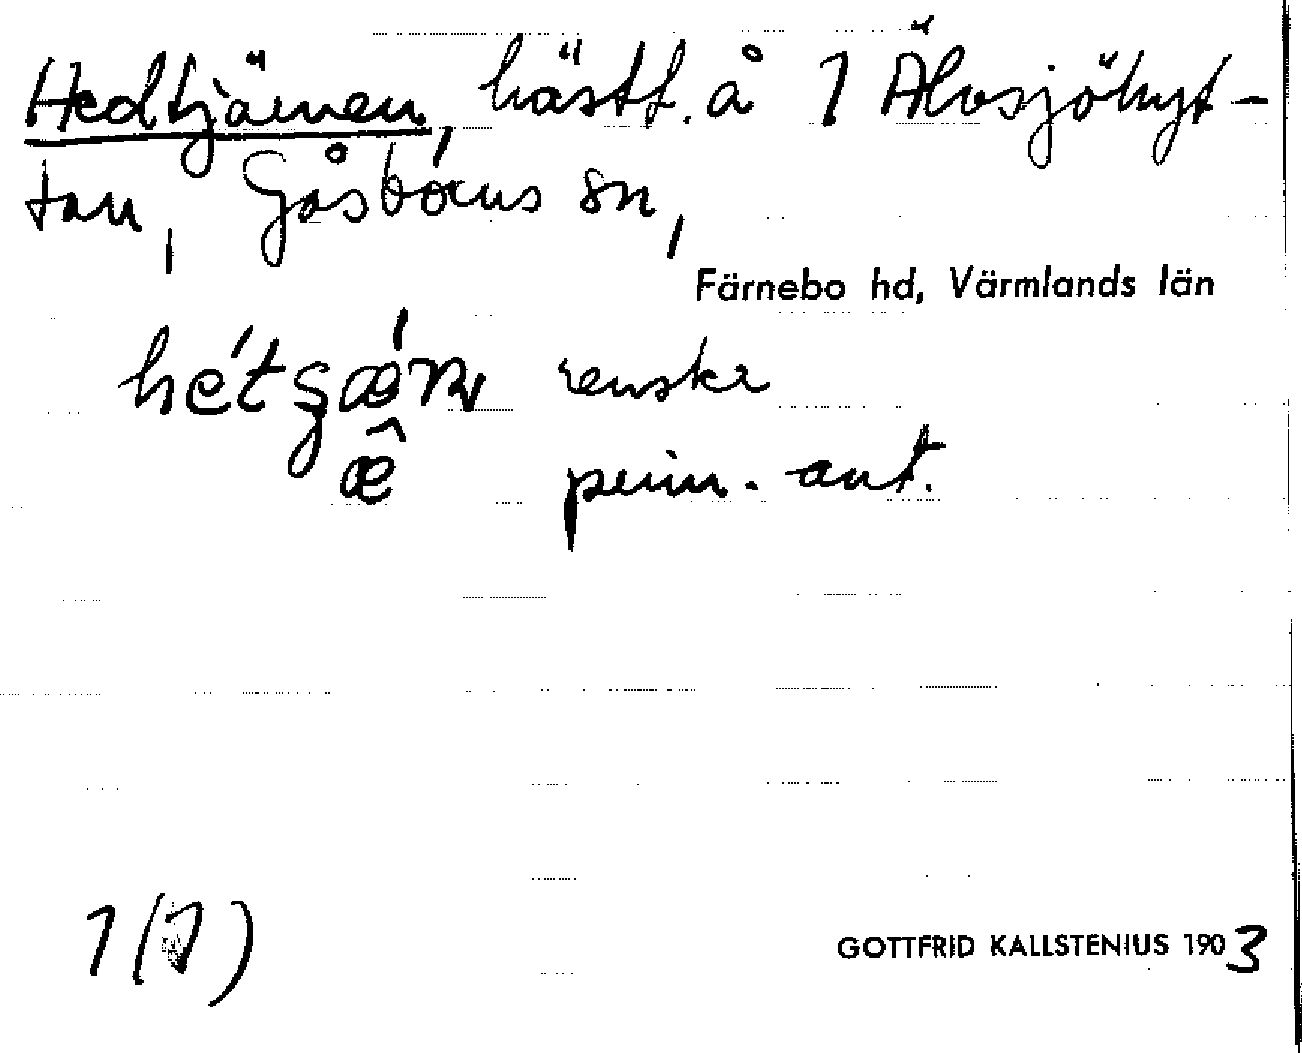 Hedtjärnen, hästt. å 1 Älvsjöhyt-
tan, Gåsborns sn,
Färnebo hd, Värmlands län
renskr
ǣ̂ penn. ant.
1(1)
GOTTFRID KALLSTENIUS 1903